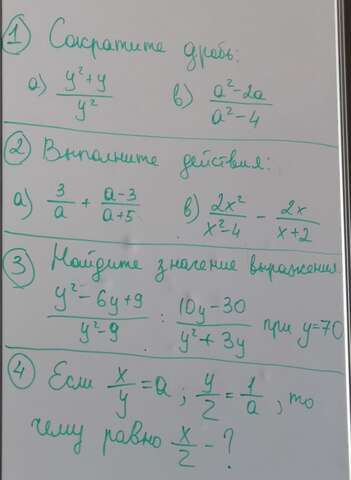 1 Сократите дробь:
а) (y²+y)/y² в) (a²-2a)/(a²-4)
2 Выполните действия:
а) 3/a + (a-3)/(a+5) в) 2x²/(x²-4) - 2x/(x+2)
3 Найдите значение выражения
(y²-6y+9)/(y²-9) : (10y-30)/(y²+3y) при y=70
4 Если x/y=a; y/z=1/a, то
чему равно x/z - ?